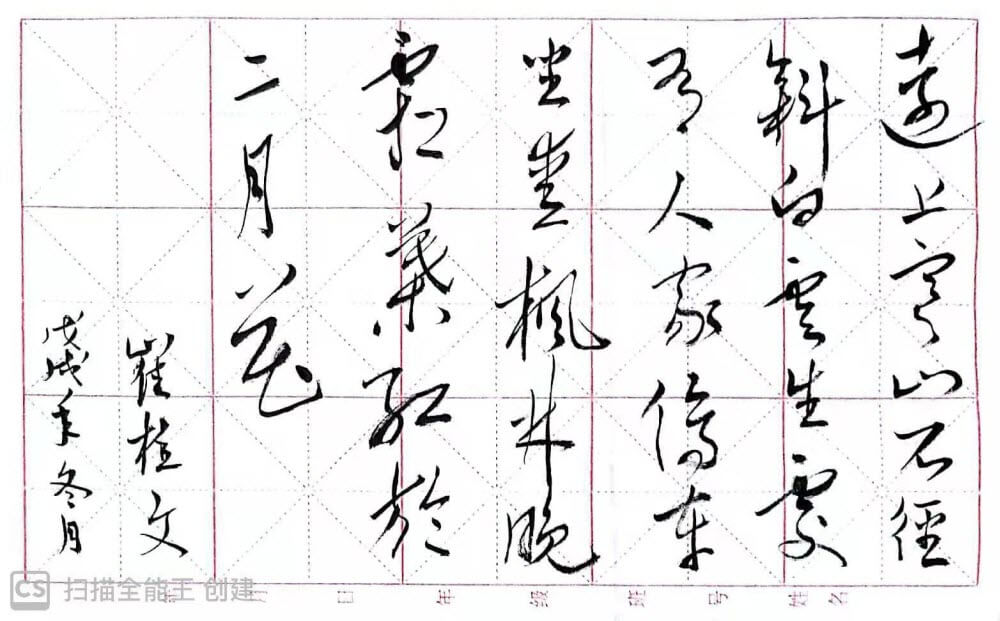 遠上寒山石徑
斜白雲生處
有人家停車
坐愛楓林晚
霜葉紅於
二月花
崔桂文
戊戌年冬月
日 年 级 班 号 姓名
CS 扫描全能王 创建